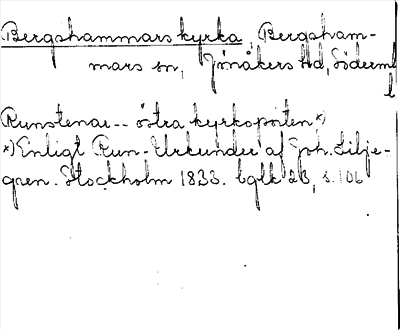 Bergshammars kyrka, Bergsham-
mars sn, Jönåkers Hd, Söderml
l
Runstenar -- östra kyrkoporten*)
*) Enligt Run-Urkunder af Joh. Lilje-
gren. Stockholm 1833. bglk 23, s. 106